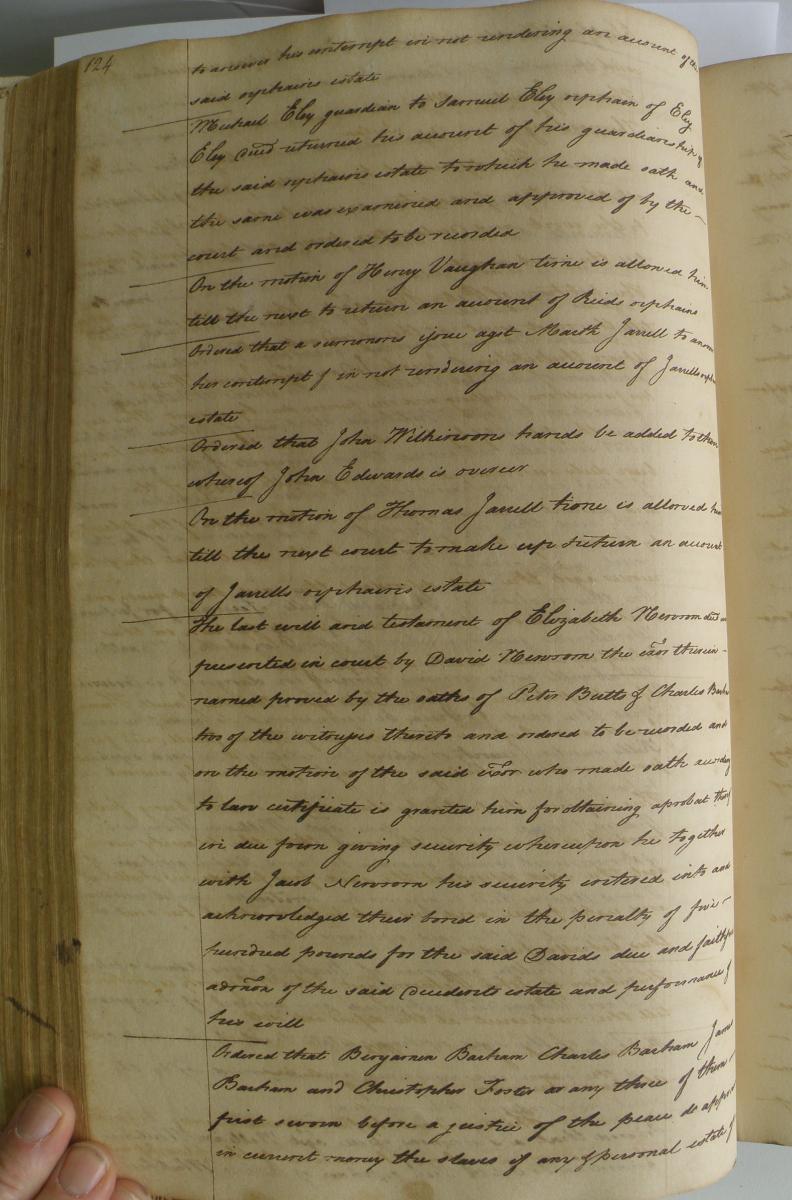 124
to answer his contempt in not rendering an account of the
said orphans estate
Michael Eley guardian to Samuel Eley orphan of Eley
Eley decd returned his account of his guardianship of
the said orphans estate to which he made oath and
the same was examined and approved of by the
court and ordered to be recorded
On the motion of Henry Vaughan time is allowed him
till the next to return an account of Reids orphans
Ordered that a summons issue agst Marth Jarrell to answer
her contempt f in not rendering an account of Jarrells orphs
estate
Ordered that John Wilkinsons hands be added to them
whereof John Edwards is overseer
On the motion of Thomas Jarrell time is allowed him
till the next court to make up & return an account
of Jarrells orphans estate
The last will and testament of Elizabeth Newsom decd was
presented in court by David Newsom the exor therein
named proved by the oaths of Peter Butts & Charles
two of the witnesses thereto and ordered to be recorded and
on the motion of the said exor who made oath according
to law certificate is granted him for obtaining a probat thereof
in due form giving security whereupon he together
with Jacob Newsom his security entered into and
acknowledged their bond in the penalty of five
hundred pounds for the said Davids due and faithful
admon of the said decedents estate and performance of
his will
Ordered that Benjamin Barham Charles Barham James
Barham and Christopher Foster or any three of them
first sworn before a justice of the peace do appraise
in current money the slaves if any & personal estate of